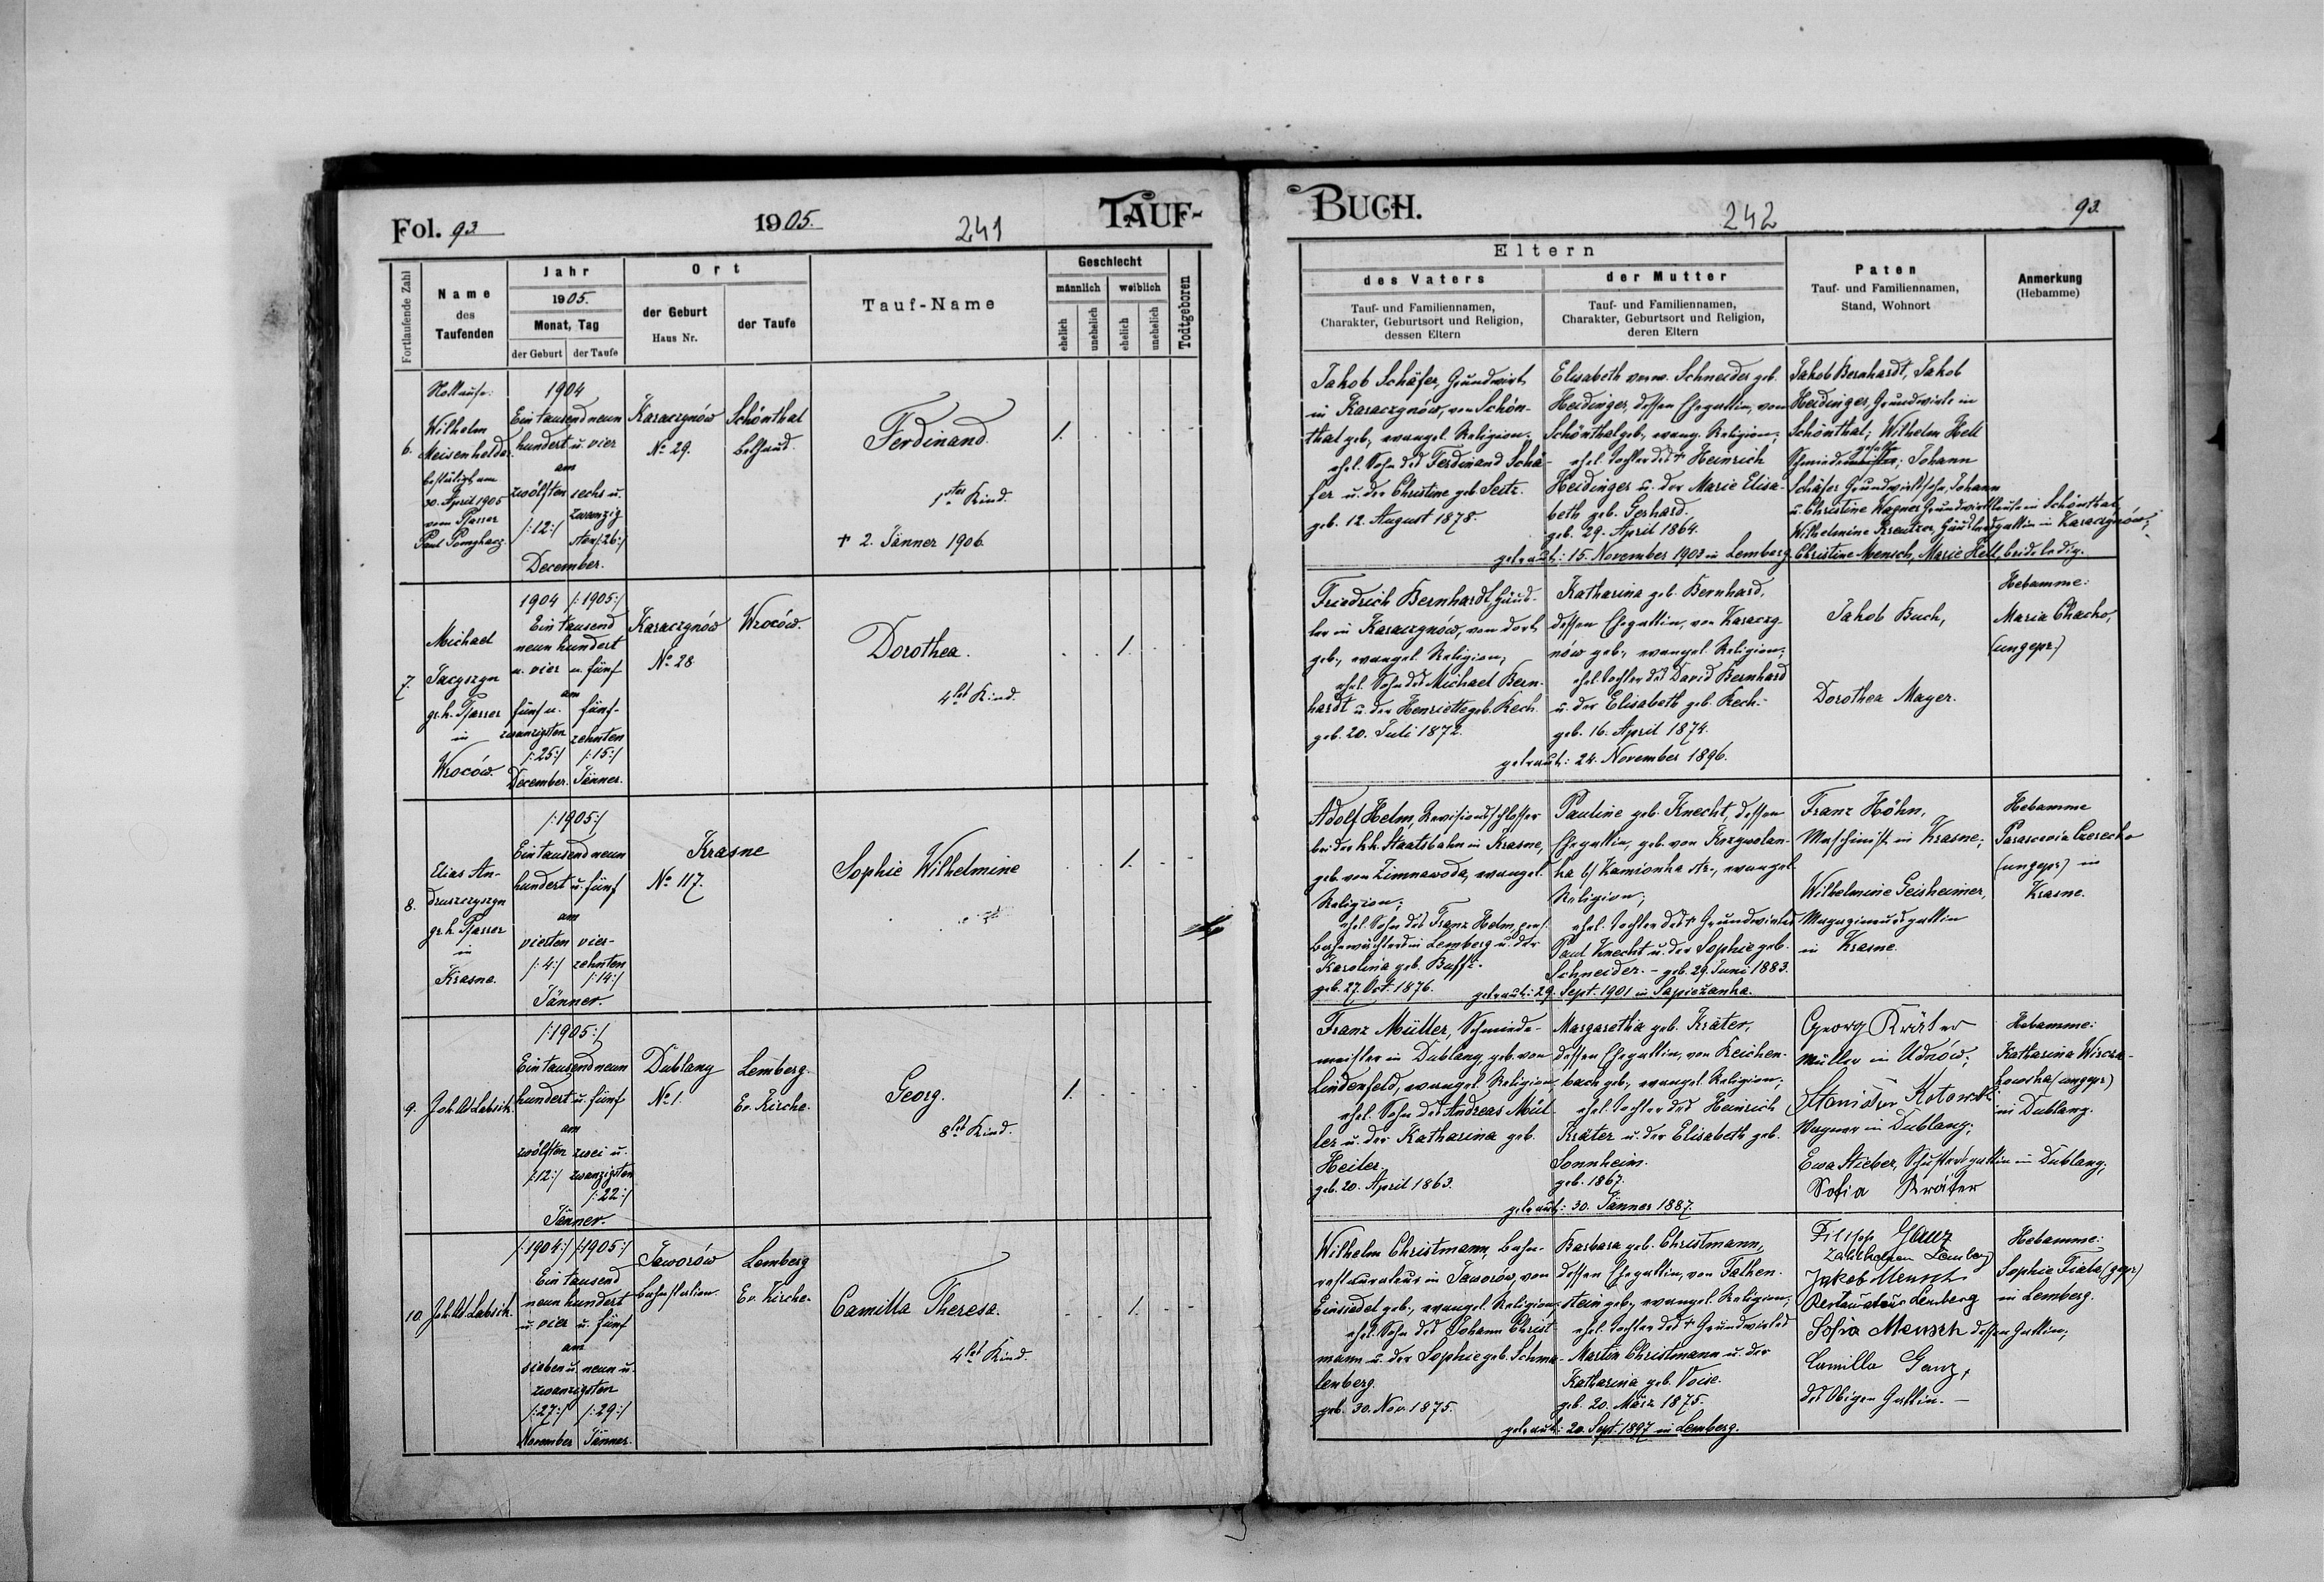 Fol. 93
1905.
241
TAUF-
Fortlaufende Zahl
Name
des
Taufenden
Jahr
1905.
Monat, Tag
der Geburt der Taufe
Ort
der Geburt
Haus Nr.
der Taufe
Tauf-Name
Geschlecht
männlich weiblich
ehelich unehelich ehelich unehelich
Todtgeboren
6.
Nottaufe:
Wilhelm
Meisenhelder
bestätigt am
30. April 1905
vom Pfarrer
Paul
1904
Ein tausend neun
hundert u. vier
am
zwölften sechs u.
zwanzig
/:12:/ sten/:26:/
December.
Karaczynów
No 29.
Schönthal
Bethaus.
Ferdinand.
1tes Kind.
† 2. Jänner 1906.
1.
7.
Michael
gr. k. Pfarrer
in
Wroców.
1904 /:1905:/
Ein tausend
neun hundert
u. vier u. fünf
am
fünf u. fünf-
zwanzigsten zehnten
/:25:/ /:15:/
December. Jänner.
Karaczynów
No 28
Wroców.
Dorothea.
4tes Kind.
1.
8.
Elias An-
druszczyszyn
gr. k. Pfarrer
in
Krasne.
/:1905:/
Ein tausend neun
hundert u. fünf
am
vierten vier-
/:4:/ zehnten
/:14:/
Jänner.
Krasne
No 117.
Sophie Wilhelmine
1.
9.
Joh. W. Labsik.
/:1905:/
Ein tausend neun
hundert u. fünf
am
zwölften zwei u.
/:12:/ zwanzigsten
/:22:/
Jänner.
Dublany
No 1.
Lemberg.
Ev. Kirche.
Georg.
8tes Kind.
1.
10.
Joh. W. Labsik.
/:1904:/ /:1905:/
Ein tausend
neun hundert
u. vier u. fünf
am
sieben u. neun u.
zwanzigsten
/:27:/ /:29:/
November Jänner.
Jaworów
Bahnstation.
Lemberg
Ev. Kirche.
Camilla Theresa.
4tes Kind.
1.
BUCH.
242
93.
Eltern
des Vaters
Tauf- und Familiennamen,
Charakter, Geburtsort und Religion,
dessen Eltern
der Mutter
Tauf- und Familiennamen,
Charakter, Geburtsort und Religion,
deren Eltern
Paten
Tauf- und Familiennamen,
Stand, Wohnort
Anmerkung
(Hebamme)
Jakob Schäfer, Grundwirt
in Karaczynów, von Schön-
thal geb., evangel. Religion;
ehel. Sohn des Ferdinand Schä-
fer u. der Christine geb. Seitz.
geb. 12. August 1878.
Elisabeth verw. Schneider geb.
Heidinger, dessen Ehegattin, von
Schönthal geb., evang. Religion;
ehel. Tochter des † Heinrich
Heidinger u. der Marie Elisa-
beth geb. Gerhard.
geb. 29. April 1864.
getraut: 15. November 1903 in Lemberg.
Jakob Bernhardt, Jakob
Heidinger, Grundwirte in
Schönthal; Wilhelm Hell
Schmied; Johann
Schäfer Grundwirtssohn, Johann
u. Christine Wagner Grundwirtsleute in Schönthal;
Wilhelmine Kreutzer, Gründlersgattin in Karaczynów;
Christine Mensch, Marie Hell, beide ledig.
Friedrich Bernhardt, Gründ-
ler in Karaczynów, von dort
geb., evangel. Religion;
ehel. Sohn des Michael Bern-
hardt u. der Henriette geb. Kech.
geb. 20. Juli 1872.
Katharina geb. Bernhard,
dessen Ehegattin, von Karaczy-
nów geb., evangel. Religion;
ehel. Tochter des David Bernhard
u. der Elisabeth geb. Kech.-
geb. 16. April 1874.
getraut: 24. November 1896.
Jakob Buch,
Dorothea Mayer.
Hebamme:
Maria Chacho,
(ungepr.)
Adolf Helm, Revisionsschlosser
bei der k.k. Staatsbahn in Krasne,
geb. von Zimnawoda, evangel.
Religion;
ehel. Sohn des Franz Helm, pens.
Bahnwächters in Lemberg u. der
Karolina geb.
geb. 27. Oct. 1876.
Pauline geb. Knecht, dessen
Ehegattin, geb. von Krzywolan-
ka b/ Kamionka str., evangel.
Religion;
ehel. Tochter des † Grundwirtes
Paul Knecht u. der Sophie geb.
Schneider. - geb. 29. Juni 1883.
getraut: 29. Sept. 1901 in Sapieżanka.
Franz Höhn,
Maschinist in Krasne;
Wilhelmine Geisheimer,
Magazineursgattin
in Krasne.
Hebamme
Parascevia Czerecho
(ungepr.) in
Krasne.
Franz Müller, Schmiede-
meister in Dublany, geb. von
Lindenfeld, evangel. Religion;
ehel. Sohn des Andreas Mül-
ler u. der Katharina geb.
Heiler.
geb. 20. April 1863.
Margaretha geb. Kräter,
dessen Ehegattin, von Reichen-
bach geb., evangel. Religion;
ehel. Tochter des Heinrich
Kräter u. der Elisabeth geb.
Sonnheim.
geb. 1867.
getraut: 30. Jänner 1887.
Georg Kräter
Müller in Udnów;
Stanisław Kotowski
Wagner in Dublany;
Ewa Stieber, Schustersgattin in Dublany;
Sofia Kräter
Hebamme:
Katharina
(ungepr.)
in Dublany.
Wilhelm Christmann, Bahn-
restaurateur in Jaworów, von
Einsiedel geb., evangel. Religion;
ehel. Sohn des Johann Christ-
mann u. der Sophie geb. Schma-
lenberg.
geb. 30. Nov. 1875.
Barbara geb. Christmann,
dessen Ehegattin, von Falken-
stein geb., evangel. Religion;
ehel. Tochter des † Grundwirtes
Martin Christmann u. der
Katharina geb. Voise.
geb. 20. März 1875.
getraut: 20. Sept. 1897 in Lemberg.
Filipp Ganz
Zahlkellner Lemberg
Jakob Mensch
Restaurateur Lemberg
Sofia Mensch dessen Gattin;
Camilla Ganz,
des Obigen Gattin. -
Hebamme:
Sophie Fiala (gepr.)
in Lemberg.